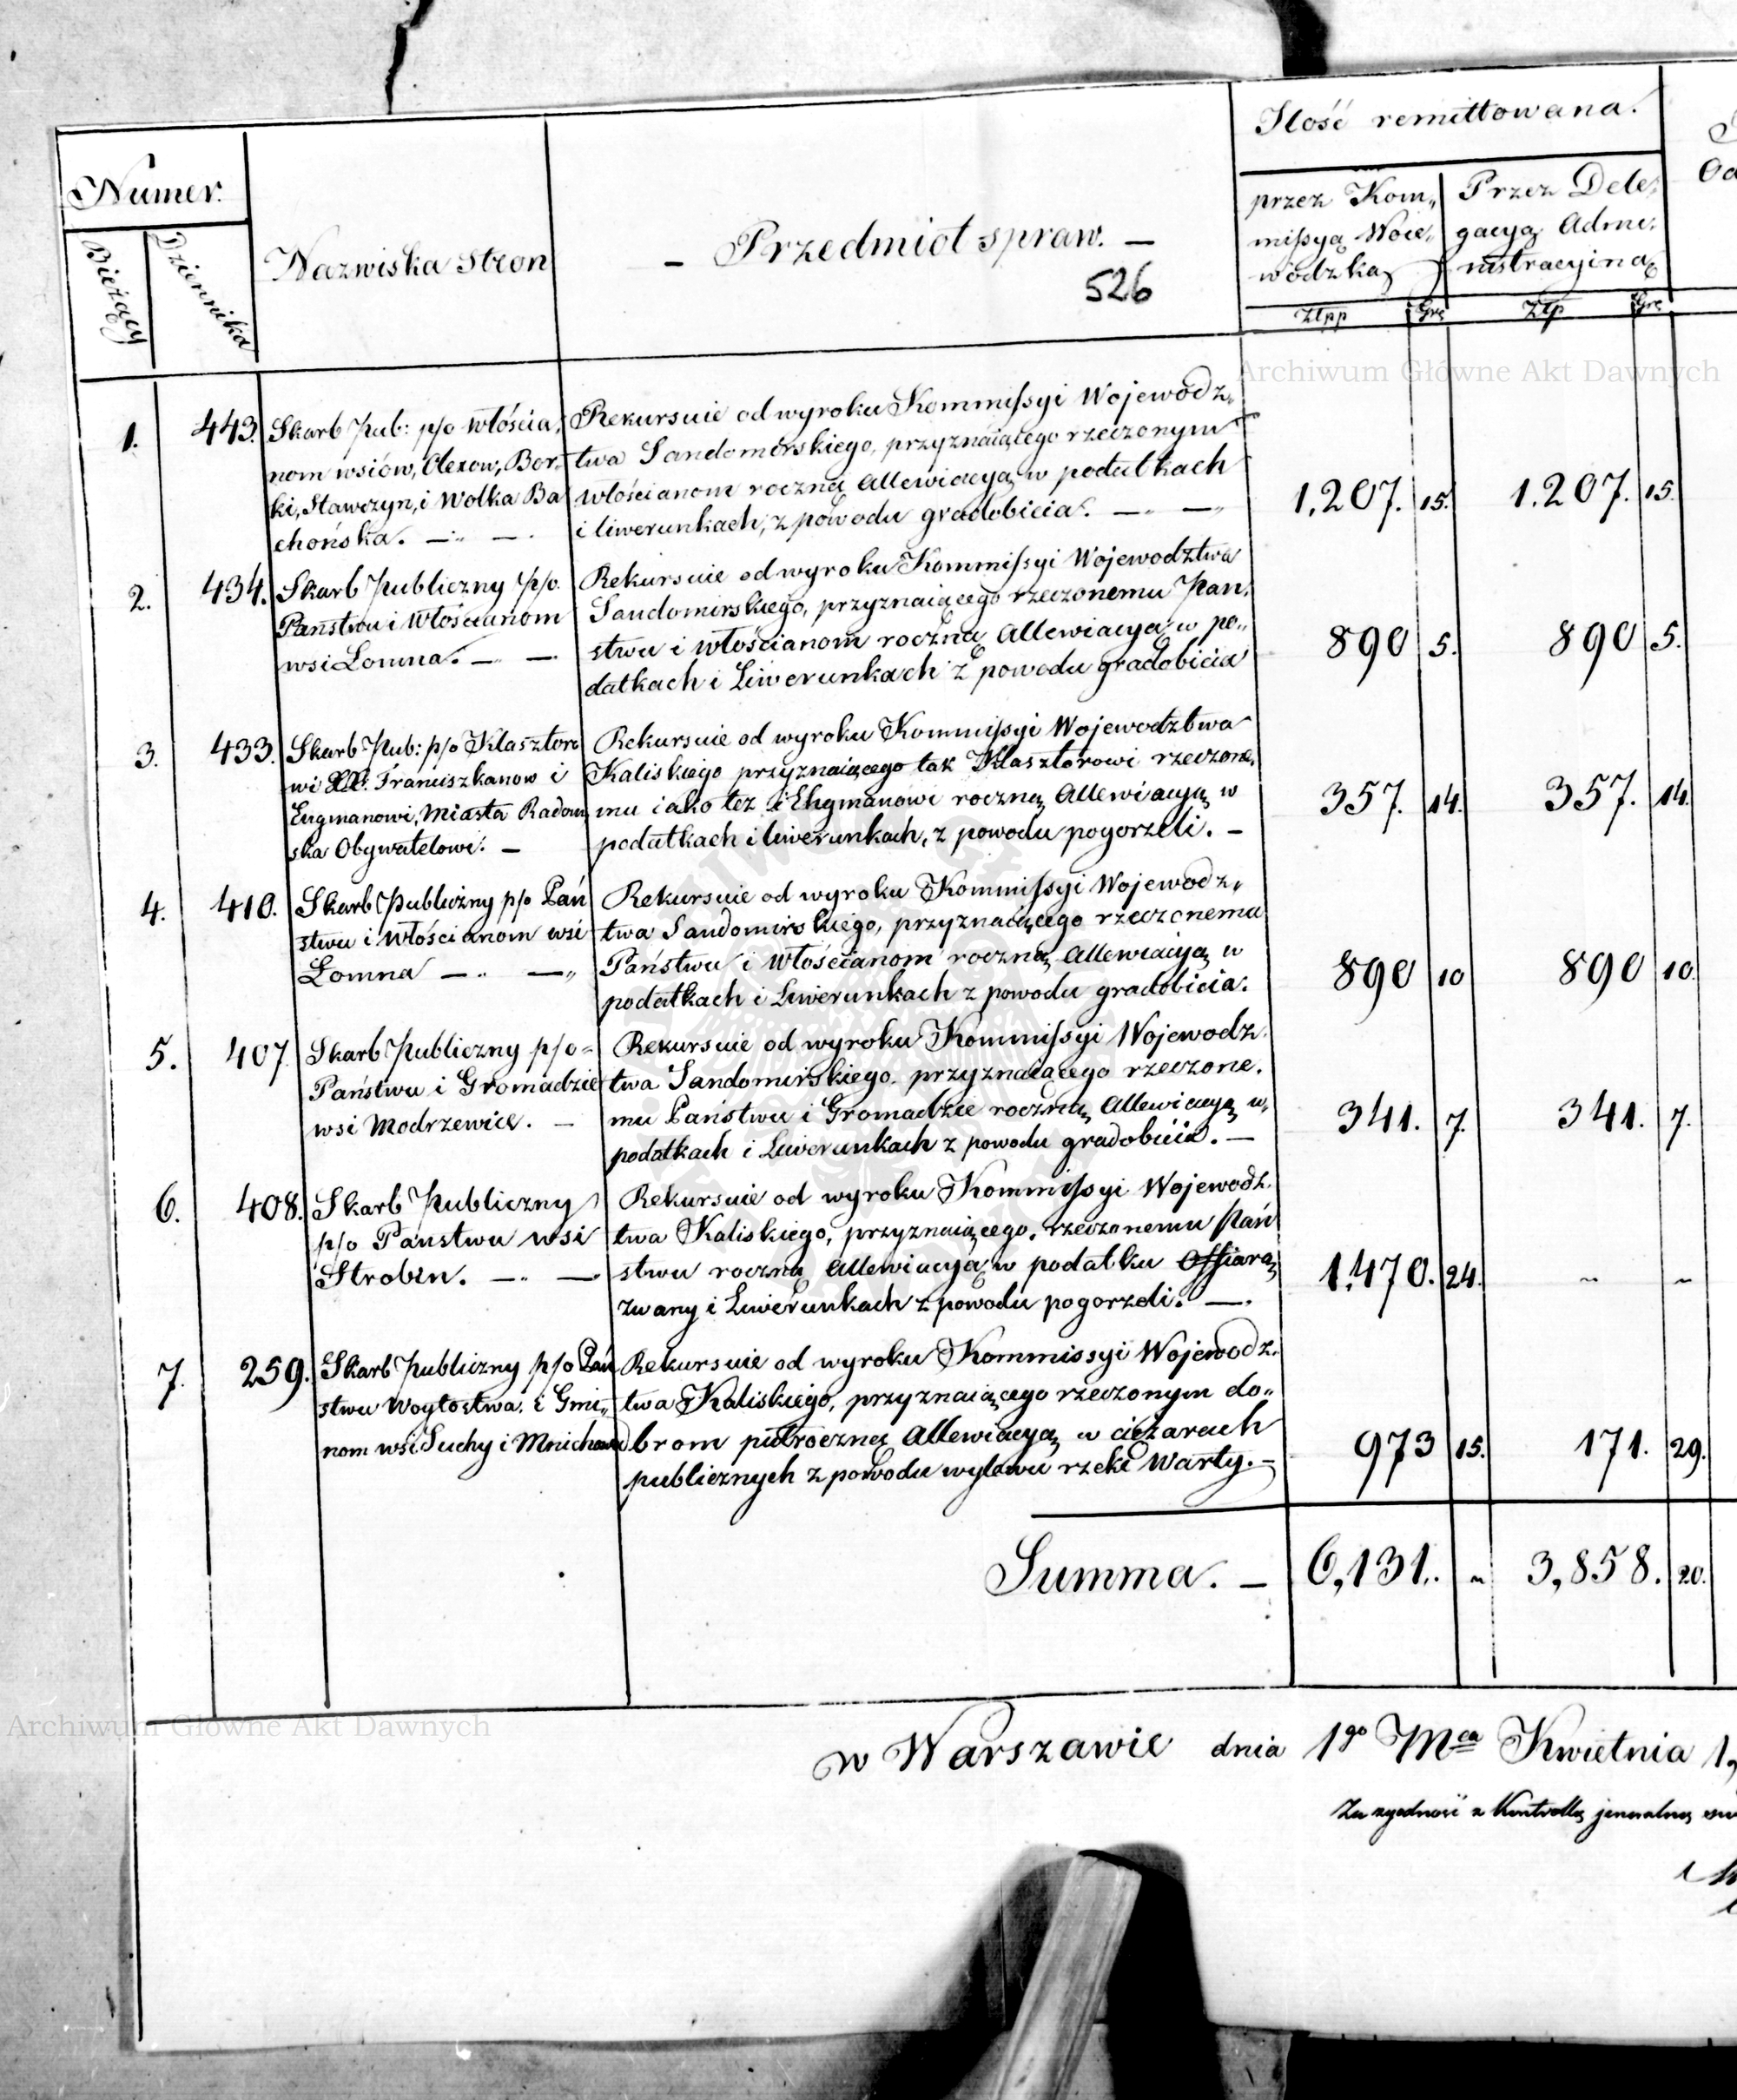 Numer.
Bieżący
Dziennika
Nazwiska Stron
Przedmiot spraw. —
526
Ilość remittowana.
przez Kom„
missyą Woie„
wodzką
Przez Dele„
gacyą Admi„
nistracyiną
Złpp
Grę
Złp
Grę
Archiwum Główne Akt Dawnych
1.
443.
Skarb Pub: p/o Włościa„
nom wsiów, Olexow, Bor„
ki, Stawczyn, i Wolka Ba
chońska. — —
Rekursuie od wyroku Kommissyi Wojewódz„
twa Sandomirskiego, przyznaiącego rzeczonym
Włościanom roczną Allewiacyą w podatkach
i liwerunkach, z powodu gradobicia. — —
1,207. 15. 1.207. 15.
2.
434.
Skarb Publiczny p/o.
Państwu i Włościanom
wsi Łomna. — —
Rekursuie od wyroku Kommissyi Wojewodztwa
Sandomirskiego, przyznaiącego rzeczonemu Pań„
stwu i włościanom roczną Allewiacyą w po„
datkach i Liwerunkach z powodu gradobicia
890 5. 890 5.
3.
433.
Skarb Pub: p/o Klasztoro
wi XX. Franciszkanow i
Engmanowi, Miasta Radom
ska Obywatelowi. —
Rekursuie od wyroku Kommissyi Wojewodztwa
Kaliskiego przyznaiącego tak Klasztorowi rzeczone„
mu iako też i Engmanowi roczną Allewiacyą w
podatkach i liwerunkach, z powodu pogorzeli. —
357. 14. 357. 14.
4.
410.
Skarb Publiczny p/o Pań
stwu i Włościanom wsi
Łomna — —
Rekursuie od wyroku Kommissyi Wojewodz„
twa Sandomirskiego, przyznaiącego rzeczonemu
Państwu i Włościanom roczną Allewiacyą w
podatkach i Liwerunkach z powodu gradobicia.
890 10 890 10.
5.
407
Skarb Publiczny p/o
Państwu i Gromadzie
wsi Modrzewice. —
Rekursuie od wyroku Kommissyi Wojewodz„
twa Sandomirskiego. przyznaiącego rzeczone„
mu Państwu i Gromadzie roczną Allewiacyą w
podatkach i Liwerunkach z powodu gradobicia. —
341. 7. 341. 7.
6.
408.
Skarb Publiczny
p/o Państwu wsi
Strobin. — —
Rekursuie od wyroku Kommissyi Wojewodz„
twa Kaliskiego, przyznaiącego, rzeczonemu Pań
stwu roczną Allewiacyą w podatku Offiarą
zwany i Liwerunkach z powodu pogorzeli. —
1,470. 24. ~ ~
7.
259.
Skarb Publiczny p/o Pań
stwu Woytostwa. i Gmi„
nom wsi Suchy i Mnichow
Rekursuie od wyroku Kommissyi Wojewodz„
twa Kaliskiego, przyznaiącego rzeczonym do„
brom pułroczną Allewiacyą w ciężarach
publicznych z powodu wylewu rzeki Warty. —
973 15. 171. 29.
Summa. — 6,131. ~ 3,858. 20.
Archiwum Główne Akt Dawnych
w Warszawie dnia 1go Mca Kwietnia
Za zgodność z Kontrollą jeneralną